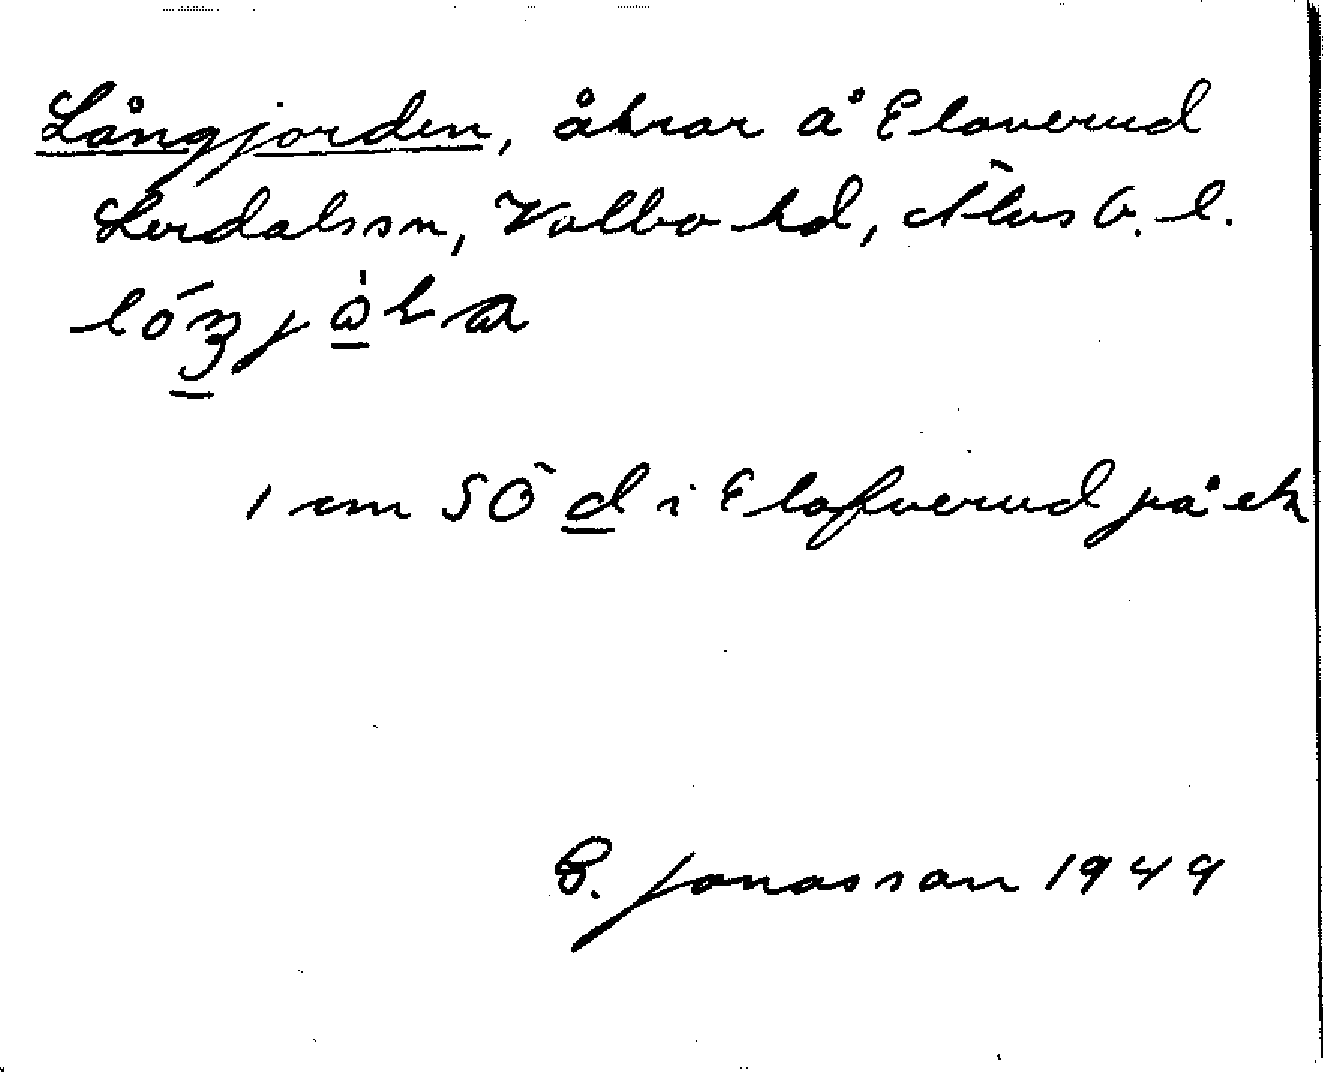 Långjorden, åkrar å Elaverud
Lerdals sn, Valbo hd, Älvsb. l.
1 cm SÖ d i Elofverud på ek
E. Jonasson 1949